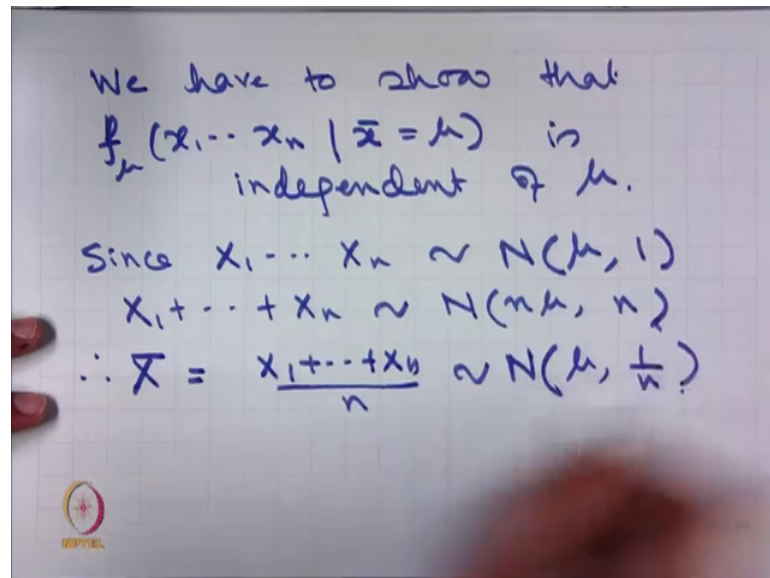 We have to show that
f_μ (x₁ ·· xₙ | x̄ = μ) is
independent of μ.
Since X₁ ··· Xₙ ~ N(μ, 1)
X₁ + ·· + Xₙ ~ N(nμ, n)
∴ X̄ = (X₁ + ·· + Xₙ)/n ~ N(μ, 1/n)
NPTEL